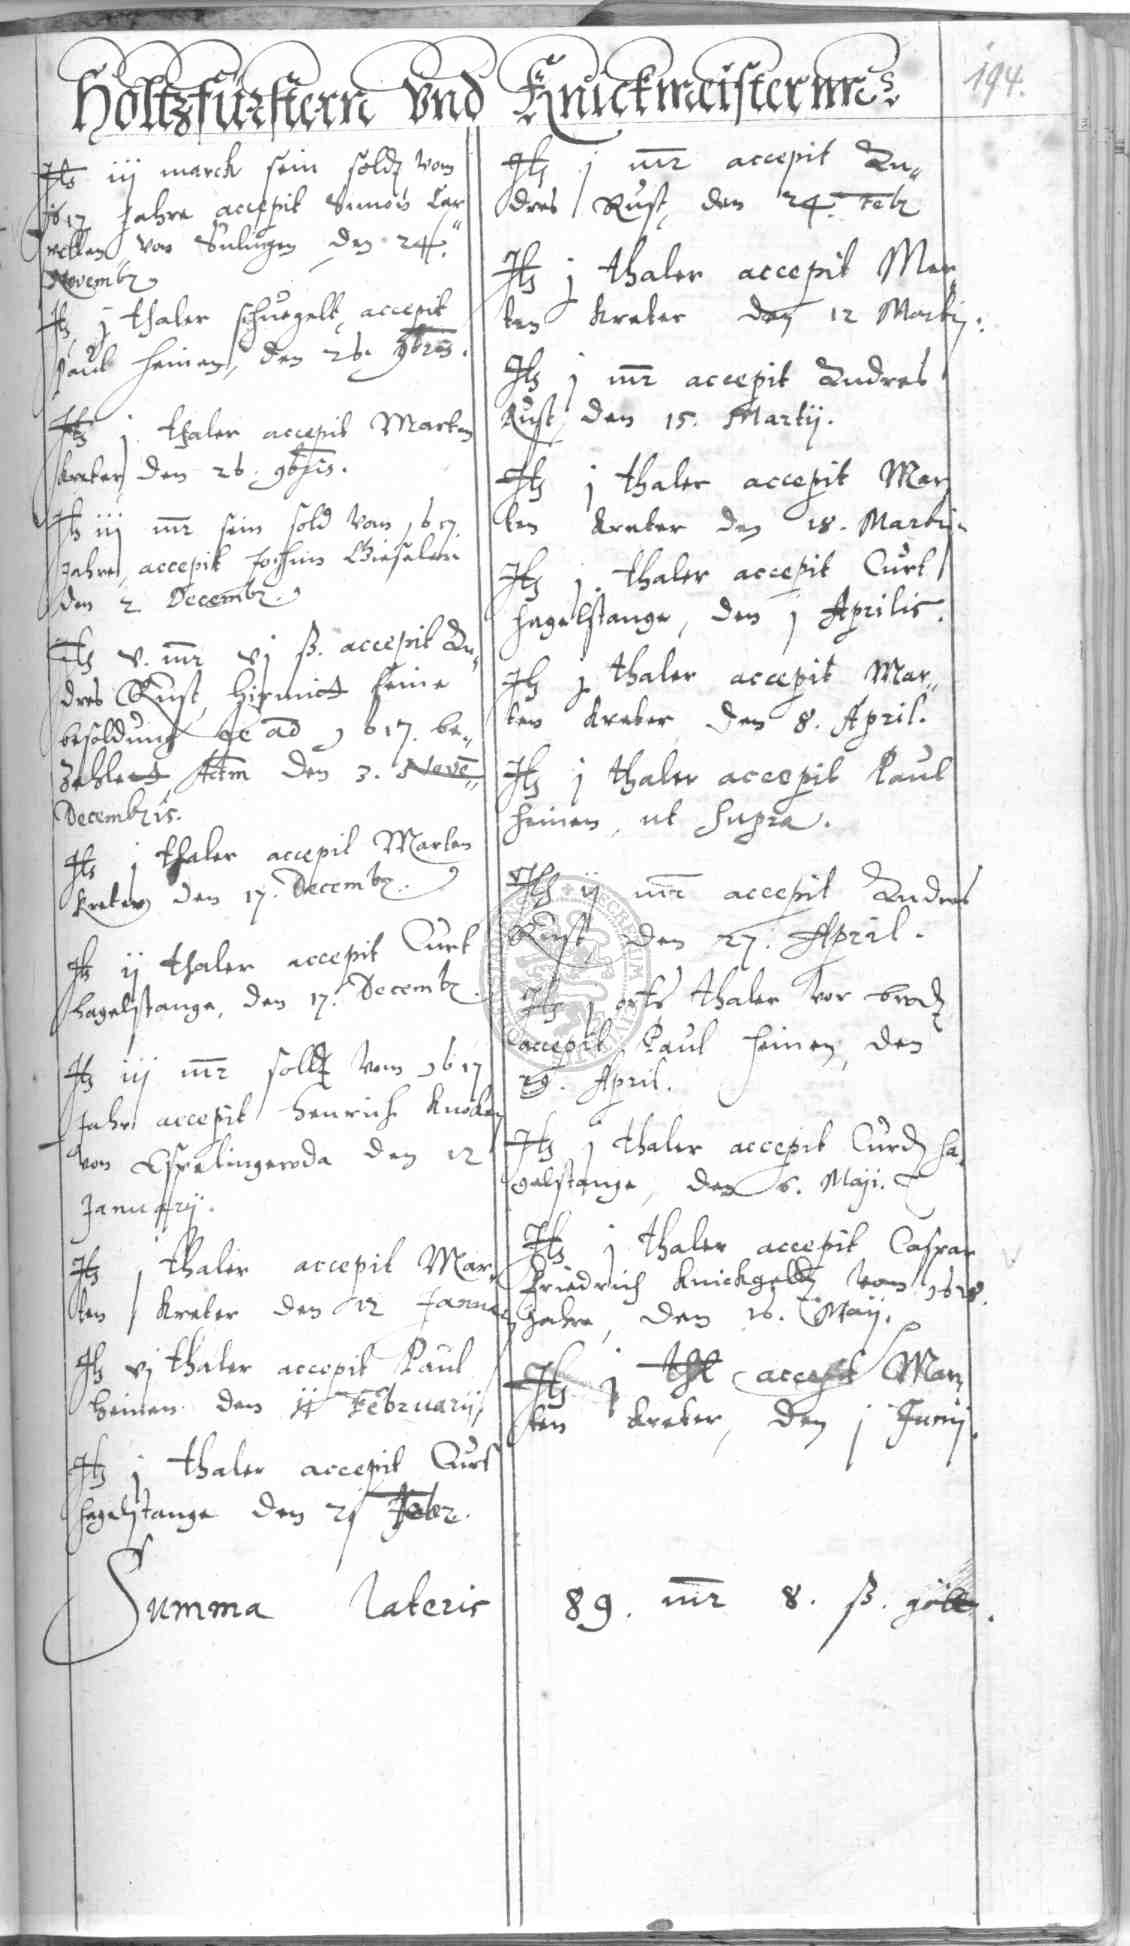 Holtzfürstern vnd Knickmeisternn
194.
Itz iij marck sein soldt vom
1617 Jahre accepit Simon
von Sulingen den 24.
Novembr
Itz j thaler schuegelt accepit
Paul Heinen, den 26. 9bris.
Itz j thaler accepit Marten
Kreter den 26. 9bris.
Itz iij mr sein sold von 1617
Jahre accepit Jochim Gieseleri
den 2 Decembr.
Itz v. mr vj ß. accepit An„
dres Rust, hirmitt seine
besoldung de ao 1617. be„
zahlett, Actm den 3. Nove„
Decembris.
Itz j thaler accepit Marten
Kreter den 17. Decembr.
Itz ij thaler accepit Curt
Hagelstange, den 17. Decembr.
Itz iij mr soldt vom 1617
Jahr accepit Henrich Knoken
von Espelingeroda den 12
Januarij.
Itz j thaler accepit Mar„
ten Kreter den 12 Januarij
Itz vj thaler accepit Paul
Heinen den Februarij
Itz j thaler accepit Curt
Hagelstange den 21 Febr.
Itz j mr accepit An„
dres Rust, den 24. Febr
Itz j thaler accepit Mar
ten Kreter den 12 Martij.
Itz j mr accepit Andres
Rust, den 15. Martij.
Itz j thaler accepit Mar
ten Kreter den 18. Martij.
Itz j thaler accepit Curt
Hagelstange, den j Aprilis.
Itz j thaler accepit Mar„
ten Kreter, den 8. April.
Itz j thaler accepit Paul
Heinen, ut supra.
Itz ij mr accepit Andres
Rust, den 27. April.
Itz j orts thaler vor brodt
accepit Paul Heinen, den
29. April.
Itz j thaler accepit Curdt Ha„
gelstange, den 6. Maji.
Itz j thaler accepit Caspar
Friedrich Knickgeldt vom 1618.
Jahre, den 16. Maij.
Itz j thl accepit Mar„
ten Kreter, den j Junij.
Summa lateris 89. mr 8. ß. gött.